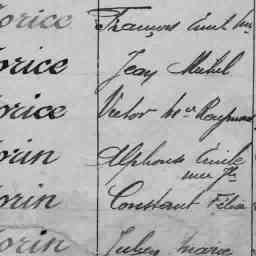 orice François Emile
orice Jean Michel
orice Victor Mie Raymond
orin Alphonse Emile
orin Constant Félix
orin Julien Marie